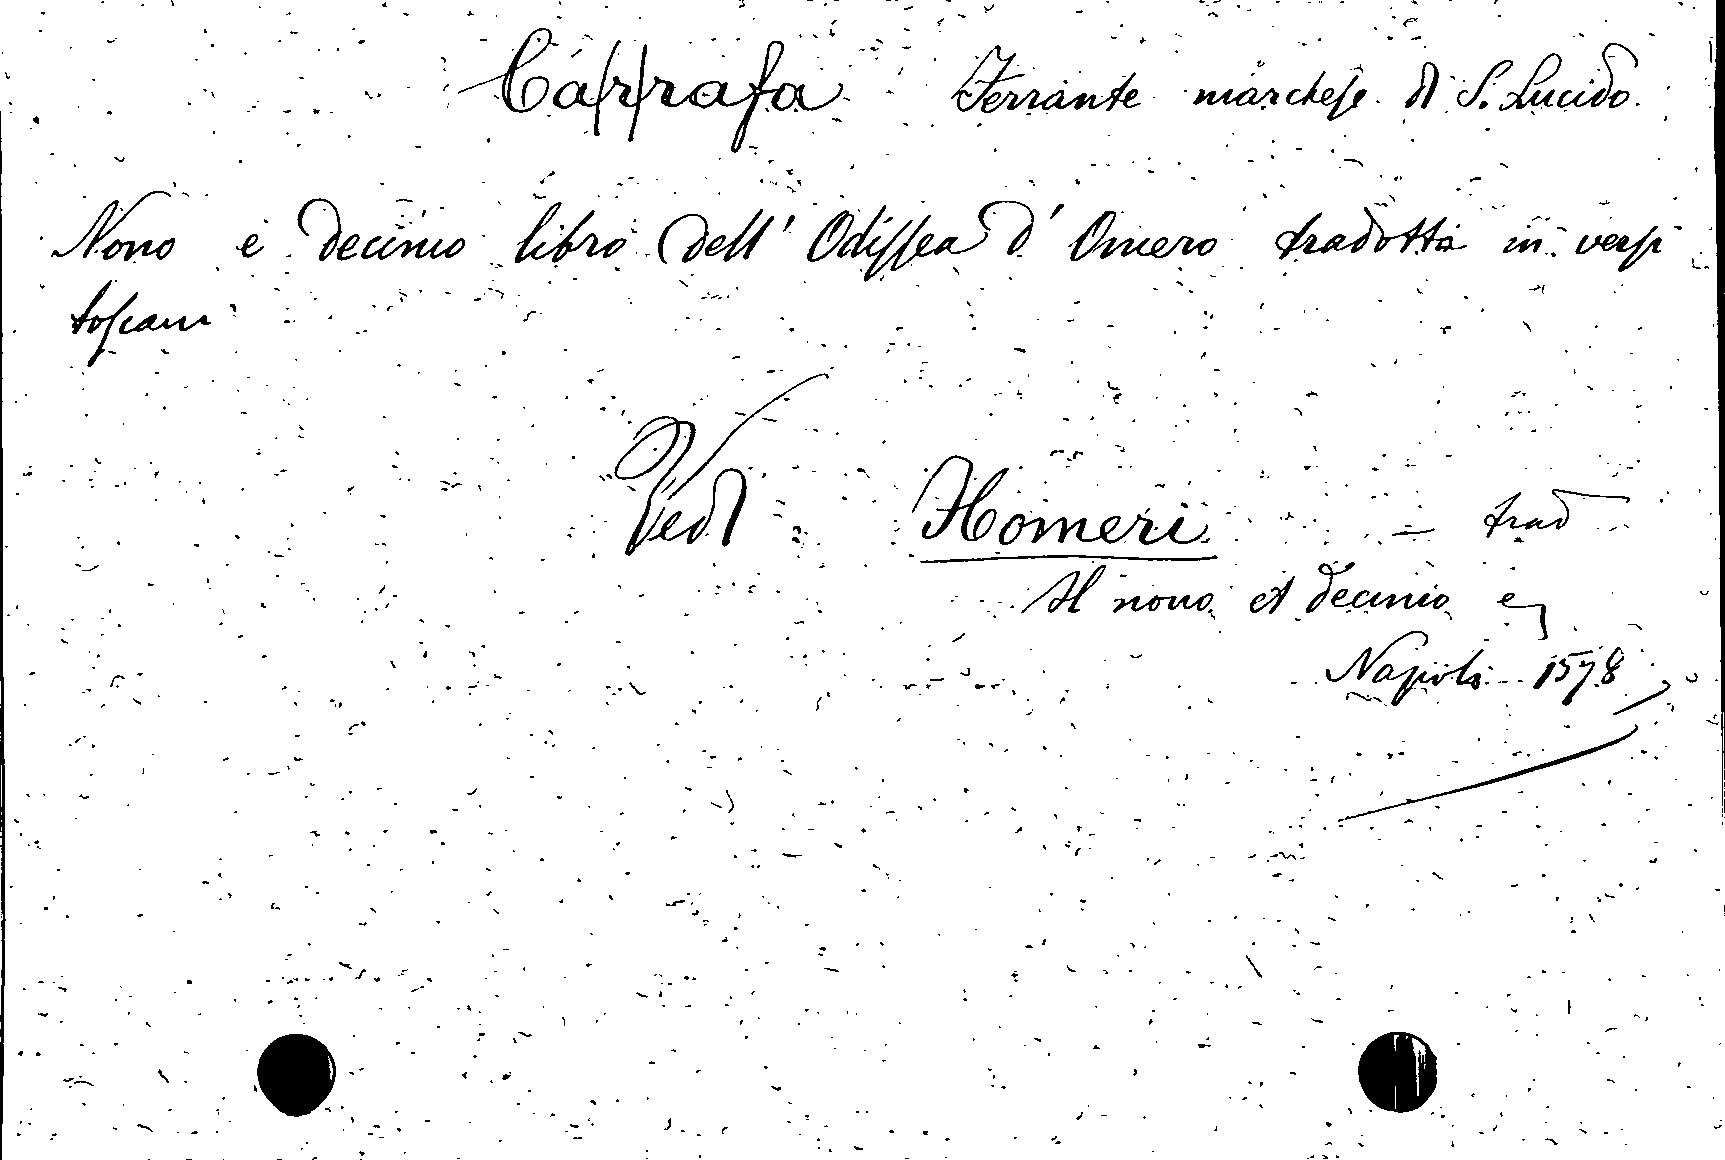 Ca(r)rafa Ferrante marchese di S. Lucido
Nono e decimo libro dell' Odissea d' Omero tradotta in versi
toscani
Vedi Homeri — trad
Il nono et decimo
Napoli 1578